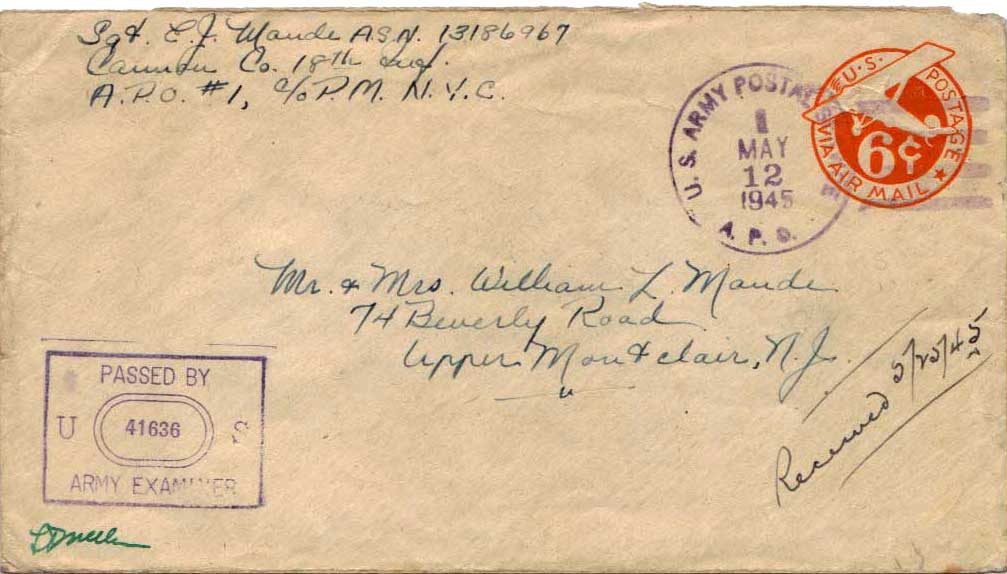 Sgt. E. J. Maude A.S.N. 13186967
Cannon Co. 18th Inf.
A.P.O. #1, c/o P.M. N.Y.C.
U.S. POSTAGE
VIA AIR MAIL
6¢
U. S. ARMY POSTAL
1
MAY
12
1945
A. P. O.
Mr. & Mrs. William L. Maude
74 Beverly Road
Upper Montclair, N.J.
Received 5/23/45
PASSED BY
U 41636 S
ARMY EXAMINER